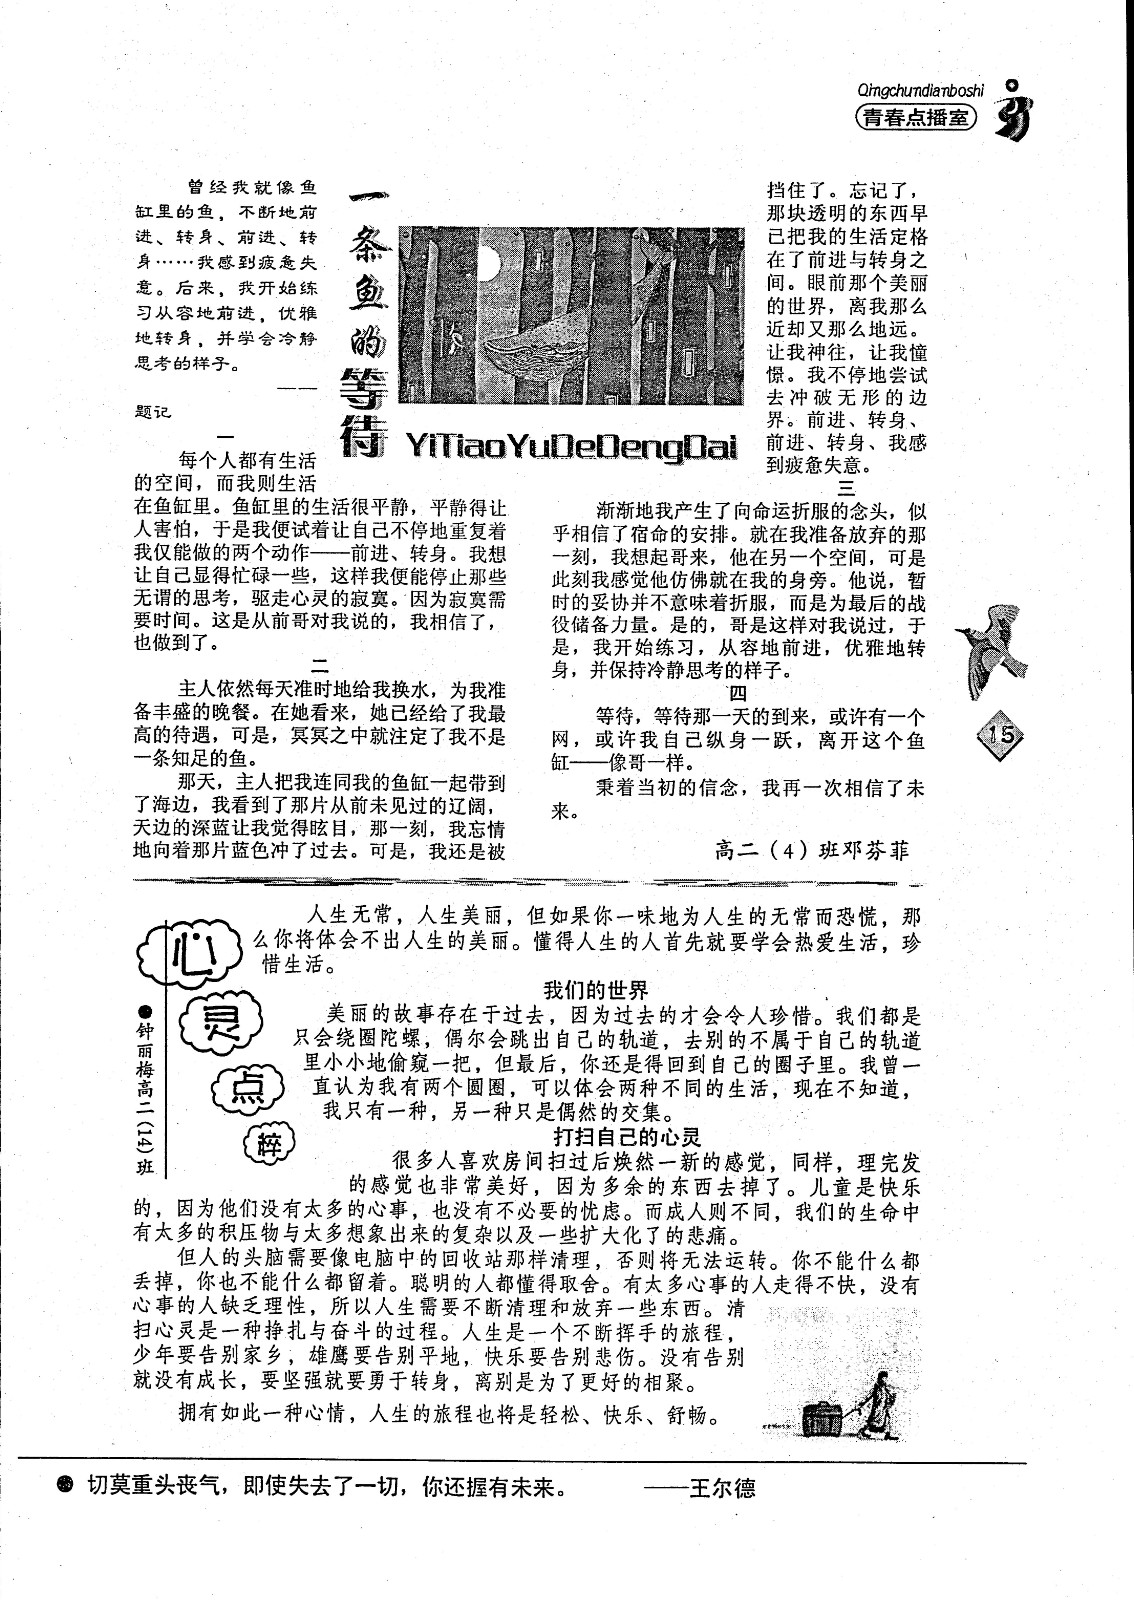 Qingchundianboshi
青春点播室
一条鱼的等待
YiTiaoYuDeDengDai
曾经我就像鱼
缸里的鱼，不断地前
进、转身、前进、转
身……我感到疲惫失
意。后来，我开始练
习从容地前进，优雅
地转身，并学会冷静
思考的样子。
——
题记
一
每个人都有生活
的空间，而我则生活
在鱼缸里。鱼缸里的生活很平静，平静得让
人害怕，于是我便试着让自己不停地重复着
我仅能做的两个动作——前进、转身。我想
让自己显得忙碌一些，这样我便能停止那些
无谓的思考，驱走心灵的寂寞。因为寂寞需
要时间。这是从前哥对我说的，我相信了，
也做到了。
二
主人依然每天准时地给我换水，为我准
备丰盛的晚餐。在她看来，她已经给了我最
高的待遇，可是，冥冥之中就注定了我不是
一条知足的鱼。
那天，主人把我连同我的鱼缸一起带到
了海边，我看到了那片从前未见过的辽阔，
天边的深蓝让我觉得眩目，那一刻，我忘情
地向着那片蓝色冲了过去。可是，我还是被
挡住了。忘记了，
那块透明的东西早
已把我的生活定格
在了前进与转身之
间。眼前那个美丽
的世界，离我那么
近却又那么地远。
让我神往，让我憧
憬。我不停地尝试
去冲破无形的边
界。前进、转身、
前进、转身、我感
到疲惫失意。
三
渐渐地我产生了向命运折服的念头，似
乎相信了宿命的安排。就在我准备放弃的那
一刻，我想起哥来，他在另一个空间，可是
此刻我感觉他仿佛就在我的身旁。他说，暂
时的妥协并不意味着折服，而是为最后的战
役储备力量。是的，哥是这样对我说过，于
是，我开始练习，从容地前进，优雅地转
身，并保持冷静思考的样子。
四
等待，等待那一天的到来，或许有一个
网，或许我自己纵身一跃，离开这个鱼
缸——像哥一样。
秉着当初的信念，我再一次相信了未
来。
高二（4）班邓芬菲
15
心灵点粹
●钟丽梅高二(14)班
人生无常，人生美丽，但如果你一味地为人生的无常而恐慌，那
么你将体会不出人生的美丽。懂得人生的人首先就要学会热爱生活，珍
惜生活。
我们的世界
美丽的故事存在于过去，因为过去的才会令人珍惜。我们都是
只会绕圈陀螺，偶尔会跳出自己的轨道，去别的不属于自己的轨道
里小小地偷窥一把，但最后，你还是得回到自己的圈子里。我曾一
直认为我有两个圆圈，可以体会两种不同的生活，现在不知道，
我只有一种，另一种只是偶然的交集。
打扫自己的心灵
很多人喜欢房间扫过后焕然一新的感觉，同样，理完发
的感觉也非常美好，因为多余的东西去掉了。儿童是快乐
的，因为他们没有太多的心事，也没有不必要的忧虑。而成人则不同，我们的生命中
有太多的积压物与太多想象出来的复杂以及一些扩大化了的悲痛。
但人的头脑需要像电脑中的回收站那样清理，否则将无法运转。你不能什么都
丢掉，你也不能什么都留着。聪明的人都懂得取舍。有太多心事的人走得不快，没有
心事的人缺乏理性，所以人生需要不断清理和放弃一些东西。清
扫心灵是一种挣扎与奋斗的过程。人生是一个不断挥手的旅程，
少年要告别家乡，雄鹰要告别平地，快乐要告别悲伤。没有告别
就没有成长，要坚强就要勇于转身，离别是为了更好的相聚。
拥有如此一种心情，人生的旅程也将是轻松、快乐、舒畅。
● 切莫重头丧气，即使失去了一切，你还握有未来。 ——王尔德